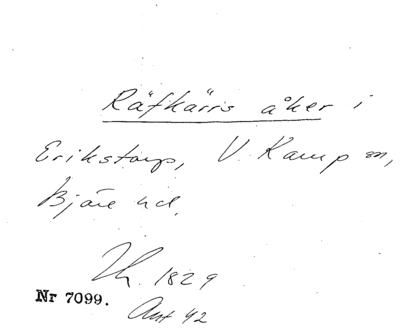 Räfkärrs åker i
Erikstorp, V. Karup sn,
Bjäre hd.
Th. 1829
Nr 7099.
Ant 42